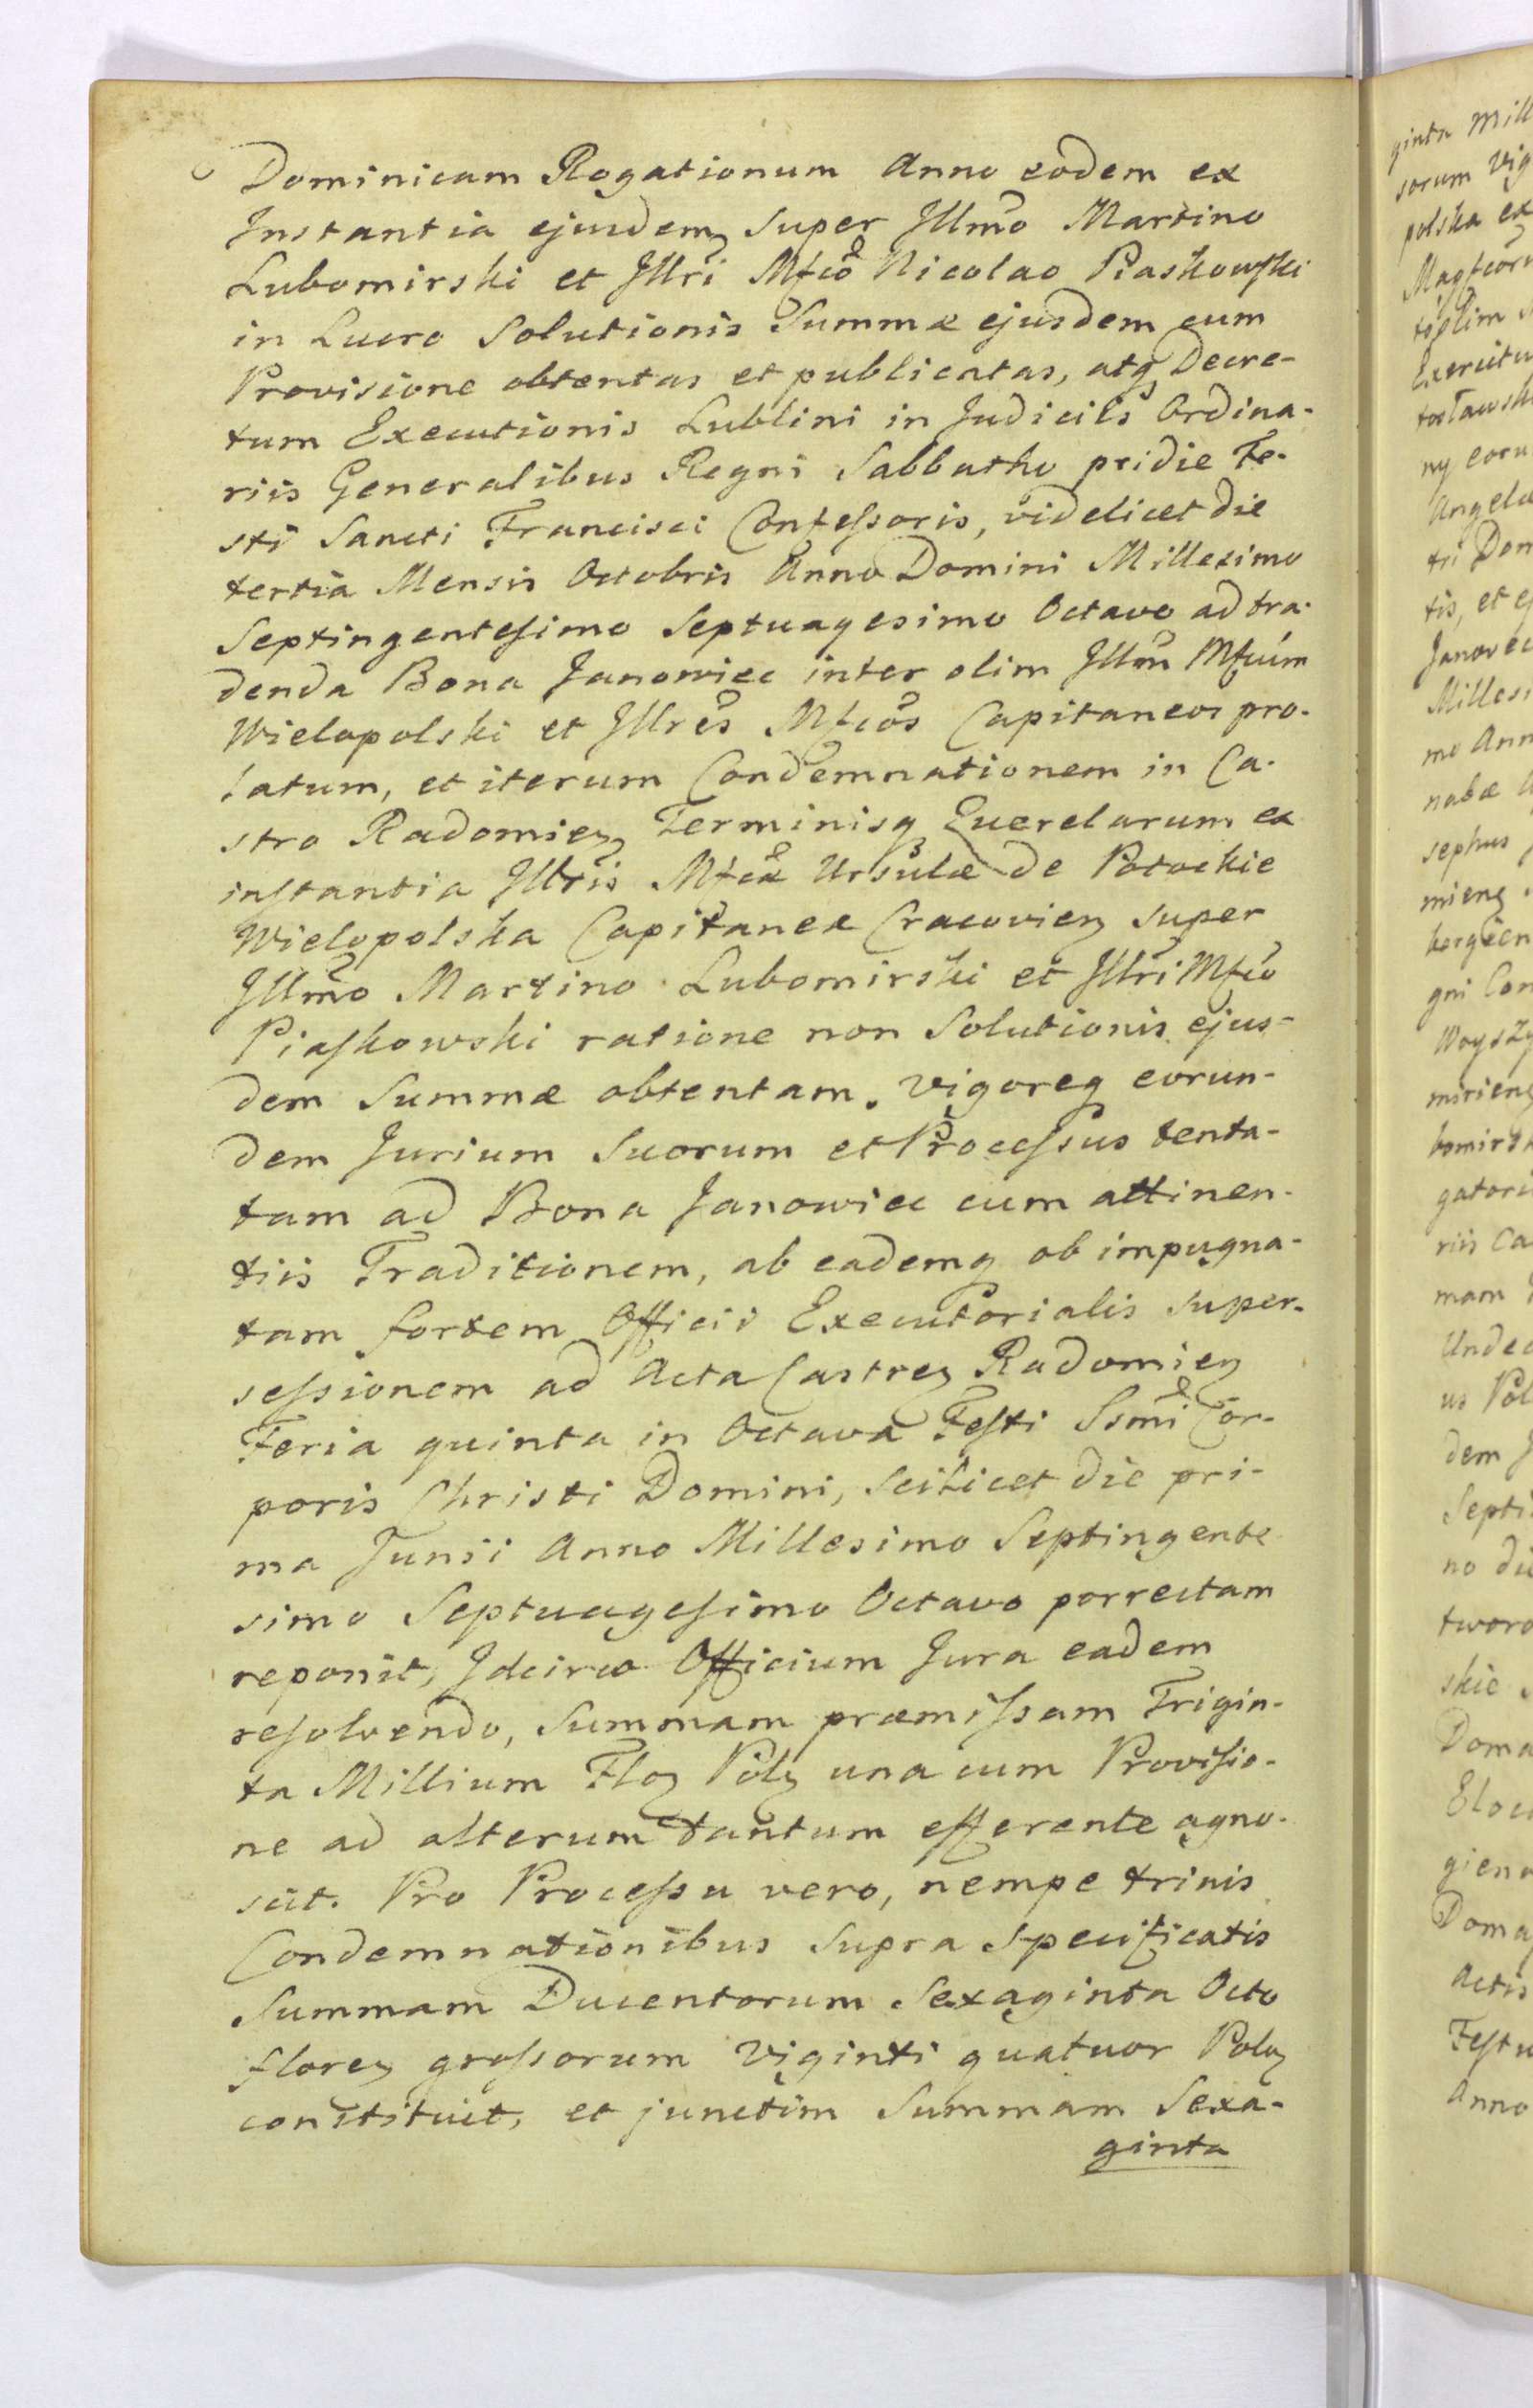 Dominicam Rogationum Anno eodem ex
Instantia ejusdem super Illmo Martino
Lubomirski et Illri Mfco Nicolao Piaskowski
in Lucro Solutionis Summæ ejusdem cum
Provisione obtentas et publicatas, atq Decre-
tum Executionis Lublini in Judiciis Ordina-
riis Generalibus Regni Sabbatho pridie Fe-
sti Sancti Francisci Confessoris, videlicet die
tertia Mensis Octobris Anno Domini Millesimo
Septingentesimo Septuagesimo Octavo ad tra-
denda Bona Janowiec inter olim Illm Mfcum
Wielopolski et Illres Mfcos Capitaneos pro-
latum, et iterum Condemnationem in Ca-
stro Radomien Terminisq Querelarum ex
instantia Illris Mfcæ Ursulæ de Potockie
Wielopolska Capitaneæ Cracovien super
Illmo Martino Lubomirski et Illri Mfco
Piaskowski ratione non Solutionis ejus-
dem Summæ obtentam. Vigoreq eorun-
dem Jurium Suorum et Processus tenta-
tam ad Bona Janowiec cum attinen-
tiis Traditionem, ab eademq ob impugna-
tam fortem Officii Executorialis super-
sessionem ad Acta Castren Radomien
Feria quinta in Octava Festi Ssmi Cor-
poris Christi Domini, Scilicet die pri-
ma Junii Anno Millesimo Septingente
simo Septuagesimo Octavo porrectam
reponit, Idcirco Officium Jura eadem
resolvendo, Summam præmissam Trigin-
ta Millium Flor Polq una cum Provisio-
ne ad alterum tantum efferente agno-
scit. Pro Processu vero, nempe trinis
Condemnationibus supra specificatis
Summam Ducentorum Sexaginta Octo
floren grossorum Viginti quatuor Polon
constituit, et junctim Summam Sexa-
ginta
ginta Mill
sorum Vig
polska ex
Exercitu
ny eoru
Angela
tri Dom
tis, et ej
Janowiec
Millesi
mo Ann
nabæ
sephus
mieng
gni Con
Woysz
bomirsk
gatori
riis Ca
mam
Undec
us Pol
dem J
Septi
no die
tworo
skie
Doma
Elocu
giena
Doma
Actis
Festu
Anno